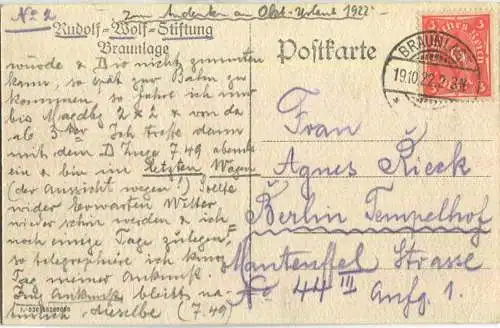 No 2
zum Andenken an Okt-Urlaub 1922
Rudolf-Wolf-Stiftung
Braunlage
Postkarte
BRAUNLAGE
19.10.22.
würde & D so nicht zumuten
kann, so spät zur Bahn zu
kommen, so fahre ich nur
bis Magdbg 2 & 2 & von da
ab 3ter. Ich treffe dann
mit dem D Zuge 7.49 abends
ein & bin im letzten Wagen
(der Aussicht wegen!) Sollte
wider Erwarten Wetter
wieder schön werden & ich
noch einige Tage zulegen,
so telegraphiere ich kurz
Tag meiner Ankunft.
Zug Ankunft bleibt na-
türlich dieselbe (7.49)
Frau
Agnes Rieck
Berlin Tempelhof
Manteuffel Strasse
No 44 III Aufg 1.